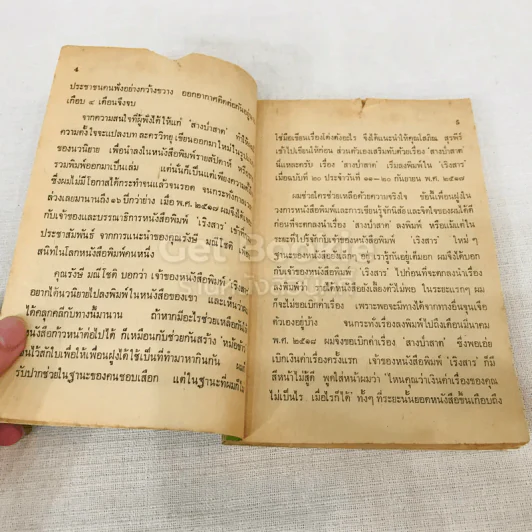 ๔
ประชาชนคนฟังอย่างกว้างขวาง ออกอากาศติดต่อกันอยู่
เกือบ ๔ เดือนจึงจบ
จากความสนใจที่ผู้ฟังได้ให้แก่ 'สางป่าสาด' ทำให้
ความตั้งใจจะแปลงบทละครวิทยุ เขียนออกมาใหม่ในรูป
ของนวนิยาย เพื่อนำลงในหนังสือพิมพ์รายสัปดาห์ หรือ
รวมพิมพ์ออกมาเป็นเล่ม แต่นั่นก็เป็นแต่เพียงความ
ซึ่งผมไม่มีโอกาสได้กระทำจนแล้วจนรอด จนกระทั่ง
ล่วงเลยมานานถึง ๑๖ ปีกว่าย่าง เมื่อ พ.ศ. ๒๕๑๗ ผมจึงได้
กับเจ้าของและบรรณาธิการหนังสือพิมพ์ 'เริงสาร'
ประชาสัมพันธ์ จากการแนะนำของคุณรังษี มณีโชติ
สนิทในโลกหนังสือพิมพ์คนหนึ่ง
คุณรังษี มณีโชติ บอกว่า เจ้าของหนังสือพิมพ์ 'เริงสาร'
อยากได้นวนิยายไปลงพิมพ์ในหนังสือของเขา และเห็นว่า
ได้คลุกคลีกับทางนี้มานาน ถ้าหากมีอะไรช่วยเหลือ
หนังสือก้าวหน้าต่อไปได้ ก็เหมือนกับช่วยกันสร้าง 'หม้อข้าว'
ไว้สักใบเพื่อให้เพื่อนฝูงได้ใช้เป็นที่ทำมาหากินกัน
รับปากช่วยในฐานะของคนชอบเสือก แต่ในฐานะที่ผม
๕
ใช่มือเขียนเรื่องโด่งดังอะไร จึงได้แนะนำให้คุณโสภิณ สุรพิรี
เข้าไปเขียนให้ก่อน ส่วนตัวเองเสริมทับด้วยเรื่อง 'สางป่าสาด'
นี่แหละครับ เรื่อง 'สางป่าสาด' เริ่มลงพิมพ์ใน 'เริงสาร'
เมื่อฉบับที่ ๒๐ ประจำวันที่ ๑๑-๒๐ กันยายน พ.ศ. ๒๕๑๗
ผมช่วยใครช่วยเหลือด้วยความจริงใจ ข้อนี้เพื่อนฝูงใน
วงการหนังสือพิมพ์และการเขียนรู้จักนิสัยและจิตใจของผมได้ดี
ก่อนที่จะตกลงนำเรื่อง 'สางป่าสาด' ลงพิมพ์ หรือแม้แต่ใน
ระยะที่ไปรู้จักกับเจ้าของหนังสือพิมพ์ 'เริงสาร' ใหม่ ๆ
ฐานะของหนังสือ
กับเจ้าของหนังสือพิมพ์ 'เริงสาร' ไปก่อนที่จะตกลงนำเรื่อง
ลงพิมพ์ว่า ค่าเรื่องไม่ต้องให้หนังสือยังเลี้ยงตัวไม่พอ ในระยะแรกๆ ผม
ก็จะไม่ขอเบิกค่าเรื่อง เพราะพอจะมีทางได้จากทางอื่นจุนเจือ
ตัวเองอยู่บ้าง จนกระทั่งเรื่องลงพิมพ์ไปถึงเดือนมีนาคม
พ.ศ. ๒๕๑๘ ผมจึงขอเบิกค่าเรื่อง 'สางป่าสาด' ซึ่งพอเอ่ย
เบิกเงินค่าเรื่องครั้งแรก เจ้าของหนังสือพิมพ์ 'เริงสาร' ก็มี
สีหน้าไม่สู้ดี พูดใส่หน้าผมว่า 'ไหนคุณว่าเงินค่าเรื่องของคุณ
ไม่เป็นไร เมื่อไรก็ได้' ทั้งๆ ที่ระยะนั้นยอดหนังสือขึ้นเกือบถึง
Get Bookie